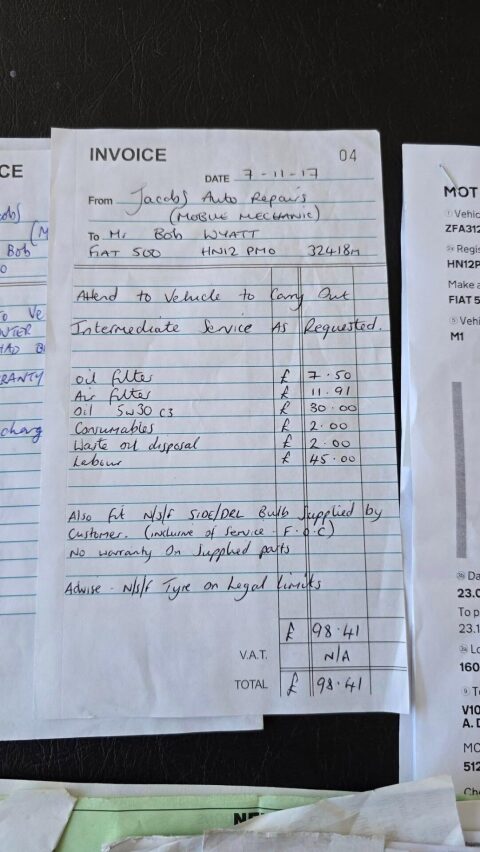 CE
INVOICE 04
DATE 7-11-17
From Jacobs Auto Repairs
(MOBILE MECHANIC)
To Mr Bob WYATT
FIAT 500 HN12 PMO 32418M
Attend to Vehicle to Carry Out
Intermediate Service As Requested.
Oil filter £ 7.50
Air filter £ 11.91
Oil 5w30 C3 £ 30.00
Consumables £ 2.00
Waste oil disposal £ 2.00
Labour £ 45.00
Also Fit N/S/F SIDE/DRL Bulb Supplied by
Customer. (inclusive of Service - F.O.C)
No warranty On Supplied parts
Advise - N/S/F Tyre on Legal limits
£ 98.41
V.A.T. N/A
TOTAL £ 98.41
Bob
RANTY
charg
MOT
Vehic
ZFA312
Regis
HN12P
Make a
FIAT 5
Vehi
M1
Da
23.0
To p
23.1
Lo
160
T
V10
A. D
MO
512
Che